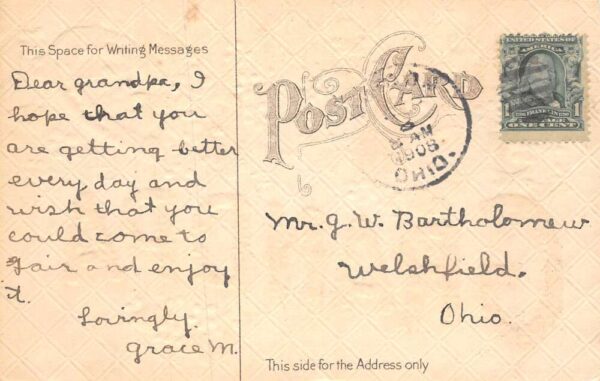 This Space for Writing Messages
Dear grandpa, I
hope that you
are getting better
every day and
wish that you
could come to
Fair and enjoy
it.
Lovingly.
Grace M.
POST CARD
AM
1908
OHIO.
UNITED STATES OF
AMERICA
1
ONE CENT
Mr. G. W. Bartholomew
Welshfield.
Ohio.
This side for the Address only